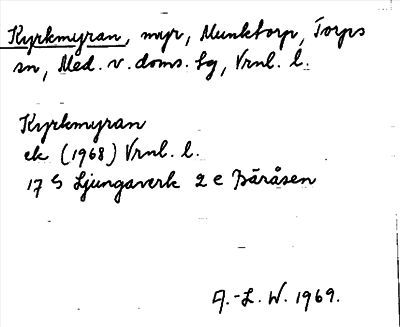 Kyrkmyran, myr, Munktorp, Torps
sn, Med. v. doms. lg, Vrnl. l.
Kyrkmyran
ek (1968) Vrnl. l.
17 G Ljungaverk 2 e Bäråsen
A.-L. W. 1969.